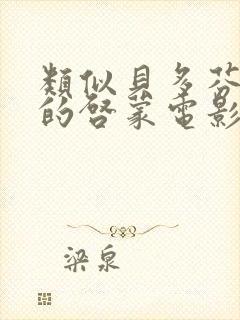 類似貝多芬
的啓蒙電影
梁泉